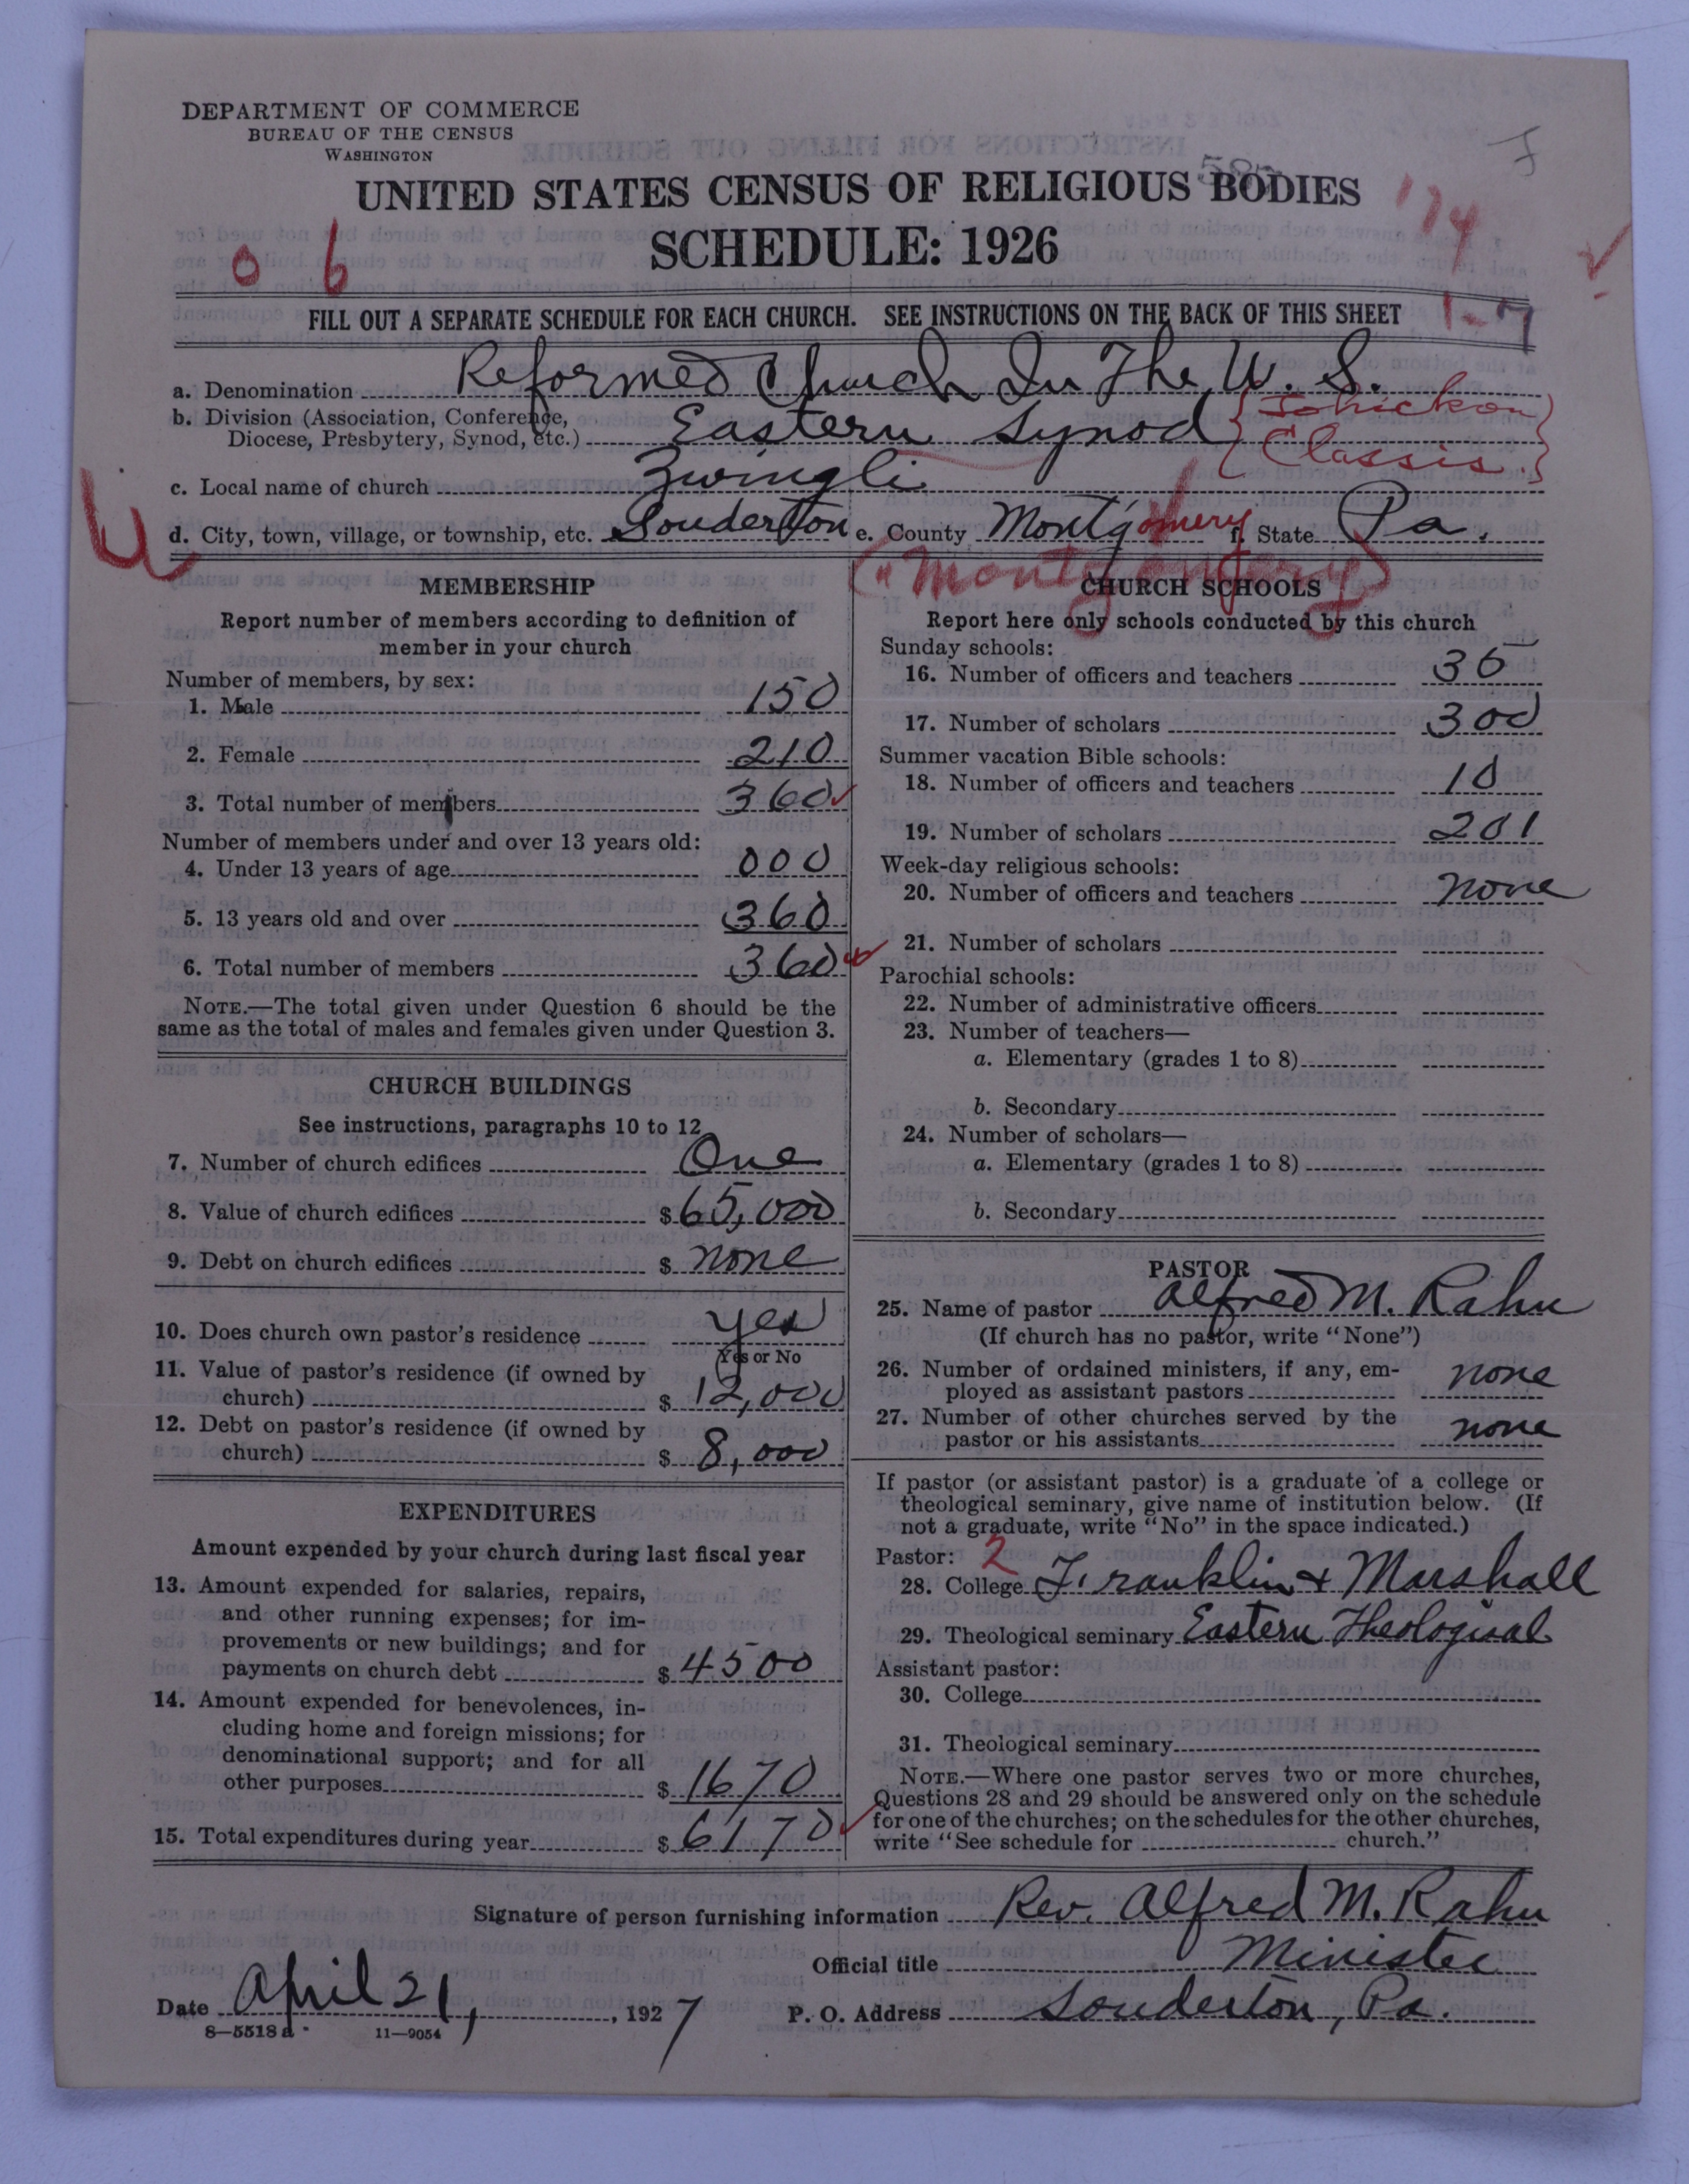 DEPARTMENT OF COMMERCE
BUREAU OF THE CENSUS
WASHINGTON
UNITED STATES CENSUS OF RELIGIOUS BODIES
174
SCHEDULE: 1926
0 6
FILL OUT A SEPARATE SCHEDULE FOR EACH CHURCH. SEE INSTRUCTIONS ON THE BACK OF THIS SHEET
1-7
a. Denomination Reformed Church In The U. S.
b. Division (Association, Conference, Diocese, Presbytery, Synod, etc.) Eastern Synod {Tohickon Classis.}
c. Local name of church Zwingli
d. City, town, village, or township, etc. Souderton e. County Montgomery f. State Pa.
("Montgomery)
MEMBERSHIP
Report number of members according to definition of
member in your church
Number of members, by sex:
1. Male 150
2. Female 210
3. Total number of members 360
Number of members under and over 13 years old:
4. Under 13 years of age 000
5. 13 years old and over 360
6. Total number of members 360
NOTE.—The total given under Question 6 should be the
same as the total of males and females given under Question 3.
CHURCH BUILDINGS
See instructions, paragraphs 10 to 12
7. Number of church edifices One
8. Value of church edifices $65,000
9. Debt on church edifices $ none
10. Does church own pastor's residence yes
Yes or No
11. Value of pastor's residence (if owned by
church) $ 12,000
12. Debt on pastor's residence (if owned by
church) $ 8,000
EXPENDITURES
Amount expended by your church during last fiscal year
13. Amount expended for salaries, repairs,
and other running expenses; for im-
provements or new buildings; and for
payments on church debt $ 4500
14. Amount expended for benevolences, in-
cluding home and foreign missions; for
denominational support; and for all
other purposes $ 1670
15. Total expenditures during year $ 6170
CHURCH SCHOOLS
Report here only schools conducted by this church
Sunday schools:
16. Number of officers and teachers 35
17. Number of scholars 300
Summer vacation Bible schools:
18. Number of officers and teachers 10
19. Number of scholars 201
Week-day religious schools:
20. Number of officers and teachers none
21. Number of scholars
Parochial schools:
22. Number of administrative officers
23. Number of teachers—
a. Elementary (grades 1 to 8)
b. Secondary
24. Number of scholars—
a. Elementary (grades 1 to 8)
b. Secondary
PASTOR
25. Name of pastor Alfred M. Rahn
(If church has no pastor, write "None")
26. Number of ordained ministers, if any, em-
ployed as assistant pastors none
27. Number of other churches served by the
pastor or his assistants none
If pastor (or assistant pastor) is a graduate of a college or
theological seminary, give name of institution below. (If
not a graduate, write "No" in the space indicated.)
Pastor: 2
28. College Franklin + Marshall
29. Theological seminary Eastern Theological
Assistant pastor:
30. College
31. Theological seminary
NOTE.—Where one pastor serves two or more churches,
Questions 28 and 29 should be answered only on the schedule
for one of the churches; on the schedules for the other churches,
write "See schedule for church."
Signature of person furnishing information Rev. Alfred M. Rahn
Official title Minister
Date April 21, 1927 P. O. Address Souderton, Pa.
8—5518 a 11—9054